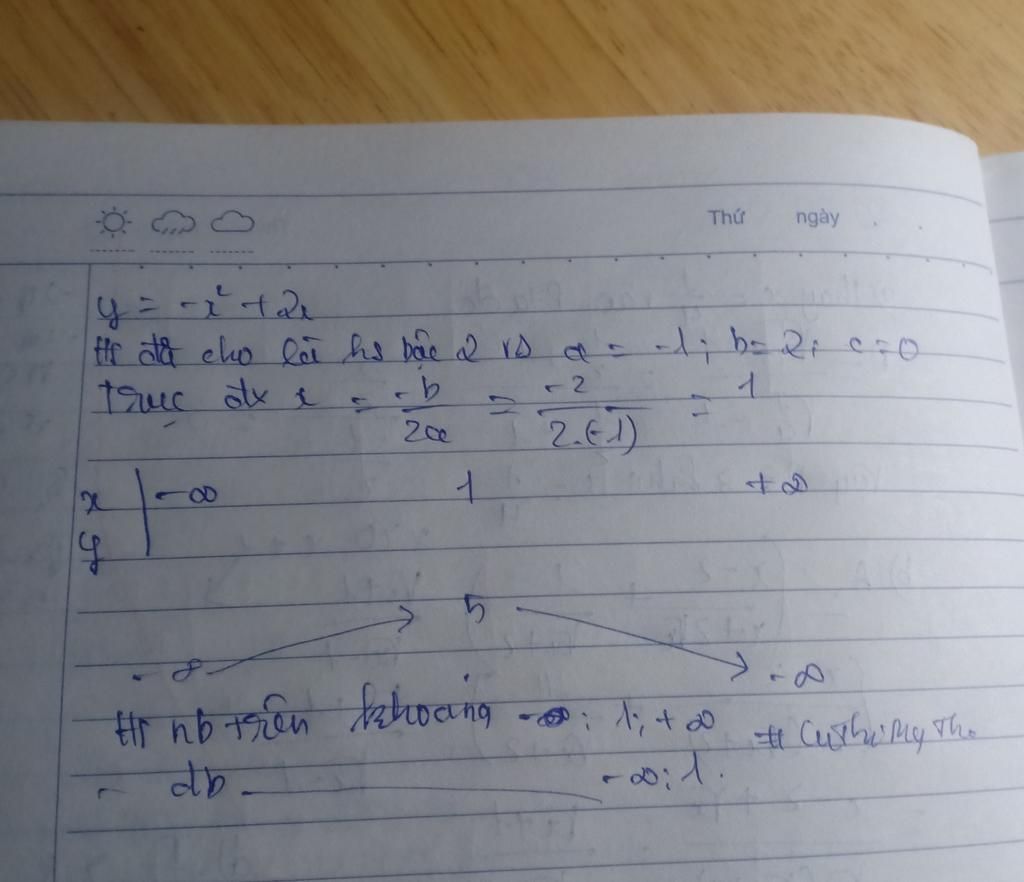 Thứ ngày
y = -x² + 2x
H/s đã cho là hs bậc 2 vs a = -1; b = 2; c = 0
trục đx x = -b/2a = -2/2.(-1) = 1
x -∞ 1 +∞
y
5
-∞ -∞
H/s nb trên khoảng -∞; 1; +∞
- db -∞; 1.